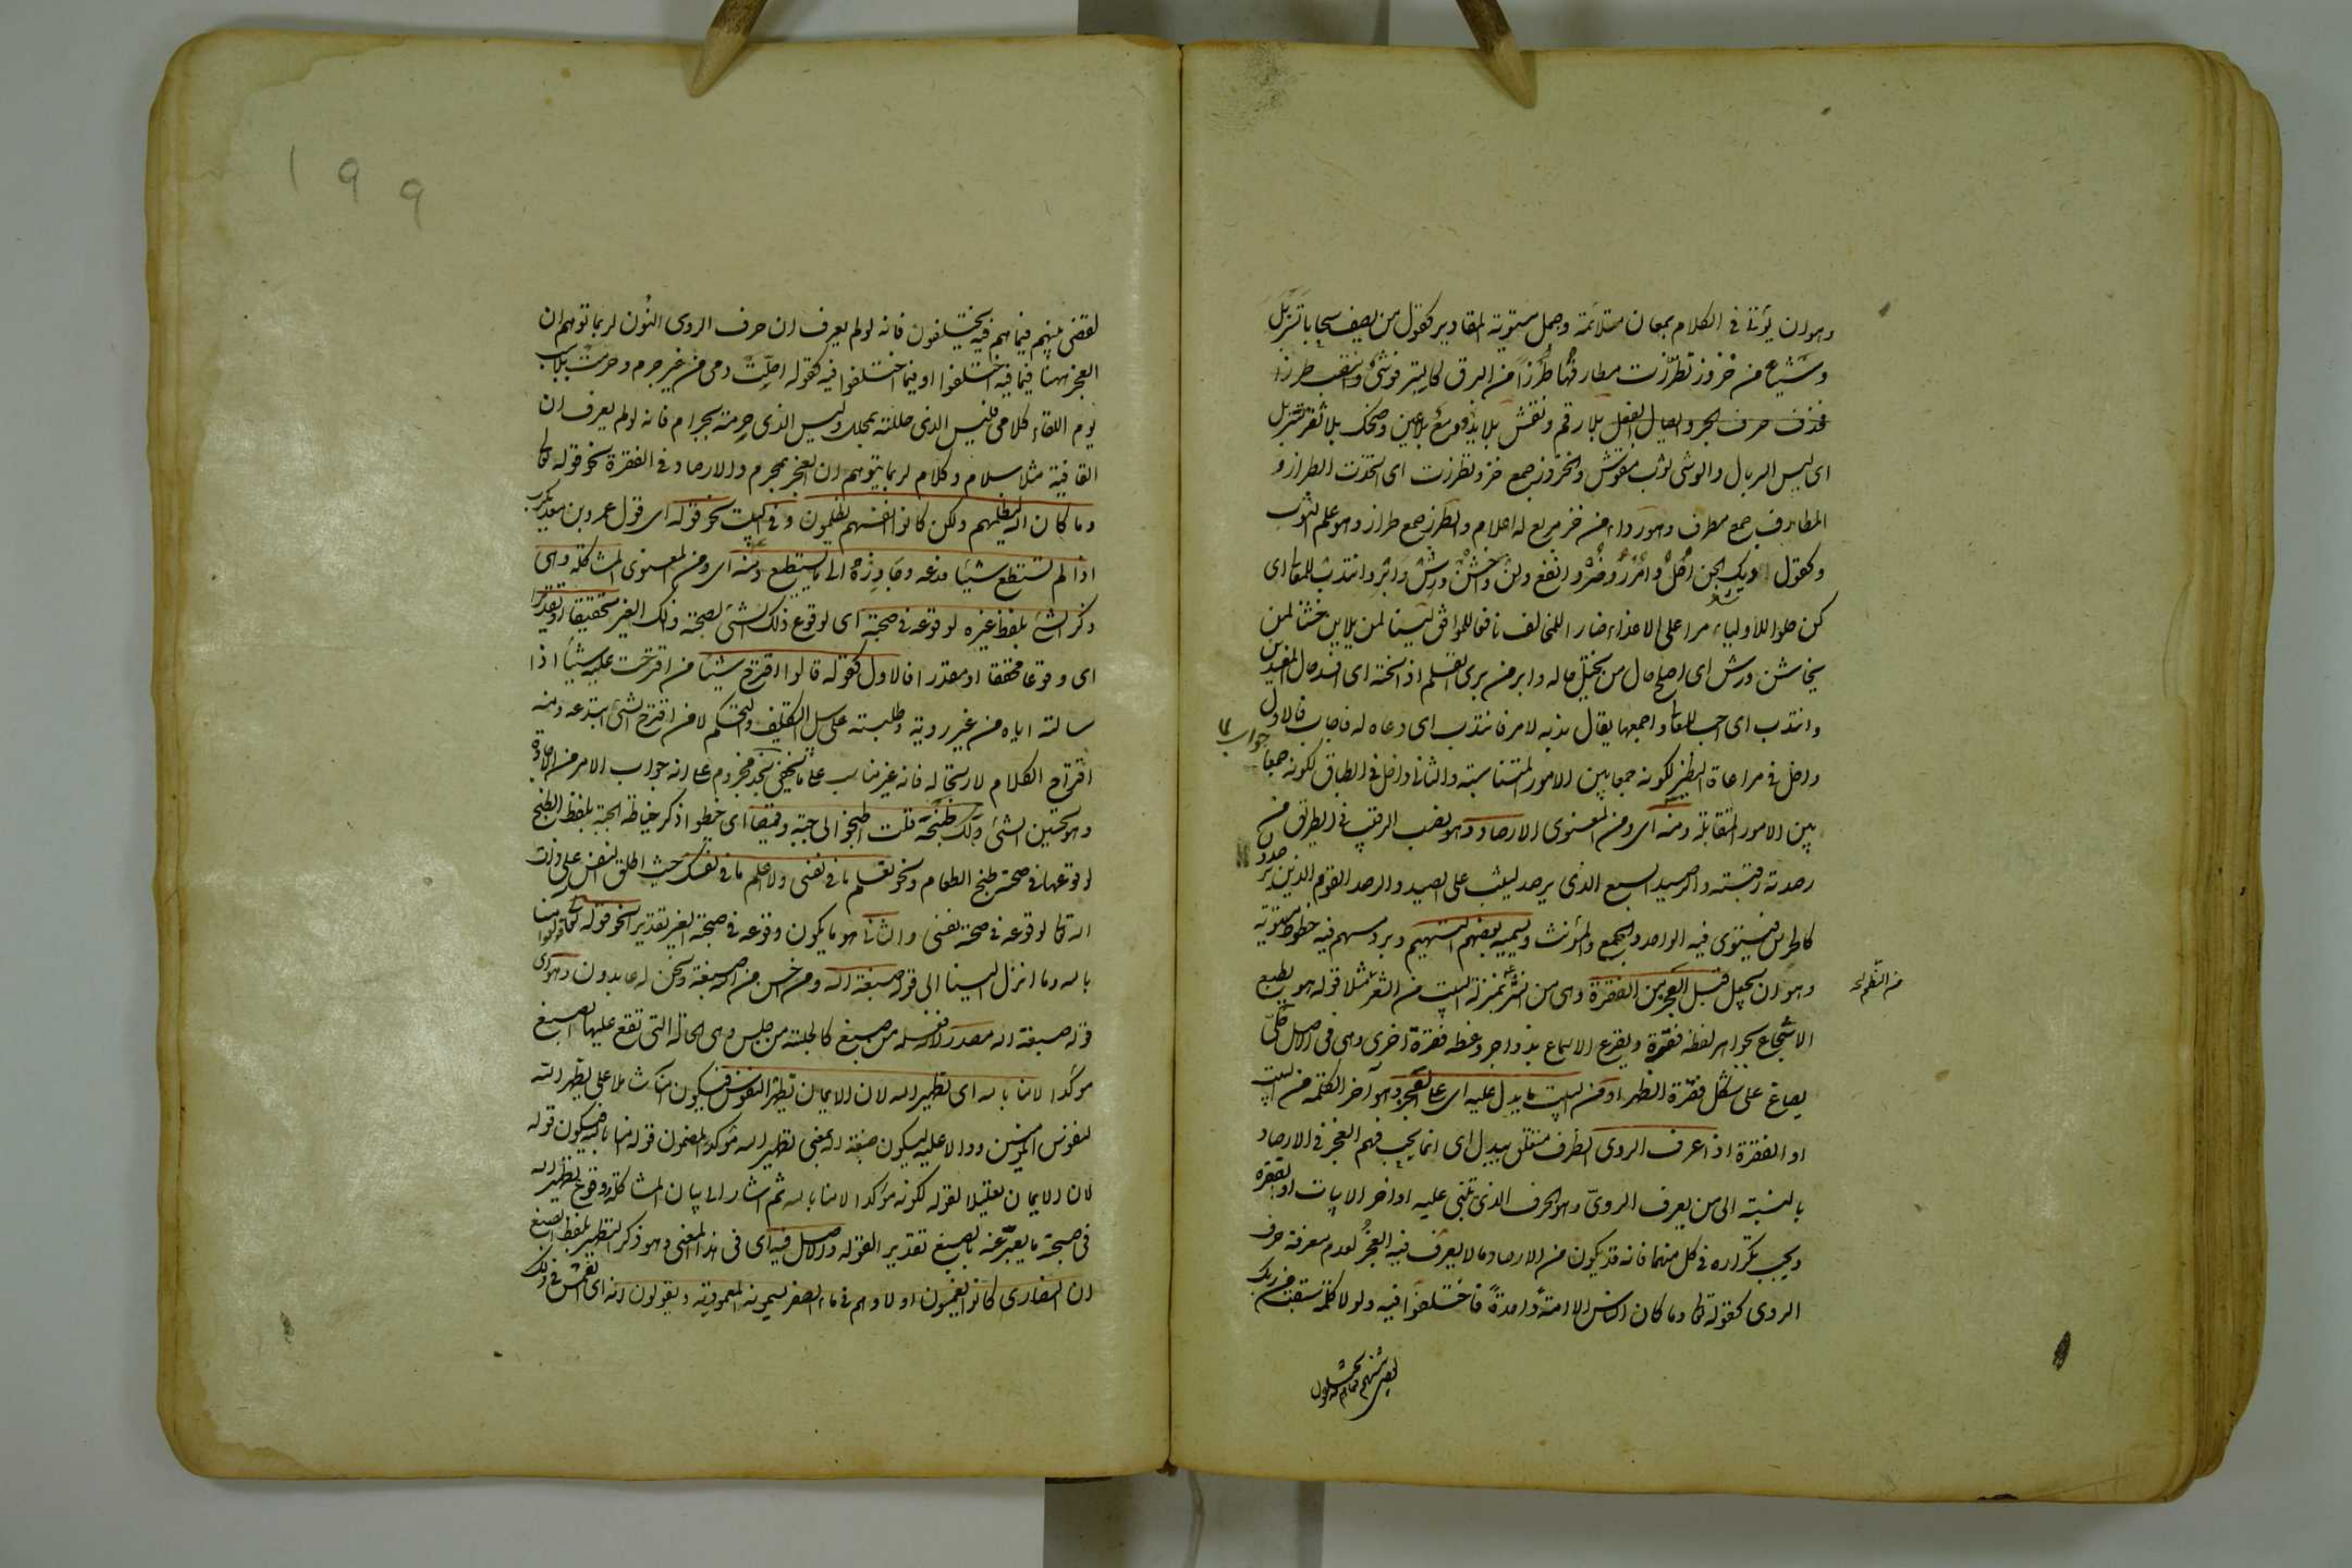 وهو ان يؤتى في الكلام بمعان متلائمة وجمل مستوية المقادير كقول من يصف سحابا تسربل
وشيا من خزوز تطرزت مطارفها طرزا من البرق كالتبر فوشى
بلا رقم ونقش بلا يد ودمع بلا عين وضحك بلا ثغر تسربل
اى لبس السربال والوشى ثوب منقوش والخزوز جمع خز وتطرزت اى اتخذت الطراز و
المطارف جمع مطرف وهو رداء من خز مربع له اعلام والطرز جمع طراز وهو علم الثوب
وكقول ديك الجن احل وامرر وضر وانفع ولن واخشن ورش وابر وانتدب للمعالى اى
كن حلوا للاولياء مرا على الاعداء ضارا للمخالف نافعا للموافق لينا لمن يلاين خشنا لمن
يخاشن ورش اى اصلح حال من يختل حاله وابر من برى القلم اذا نحته اى افسد حال المفسدين
وانتدب اى اجب للمعالى واجمعها يقال ندبه لامر فانتدب اى دعاه له فاجاب فالاول
داخل في مراعاة النظير لكونه جمعا بين الامور المتناسبة والثانى داخل في الطباق لكونه جمعا
بين الامور المتقابلة ومنه اى ومن المعنوى الارصاد وهو نصب الرقيب في الطريق من
رصدته رقبته والرصيد السبع الذى يرصد ليثب على الصيد والرصد القوم الذين يرصدون
كالحرس فيستوى فيه الواحد والجمع والمؤنث ويسميه بعضهم التسهيم وبرد مسهم فيه خطوط مستوية
وهو ان يجعل قبل العجز من الفقرة وهى من النثر بمنزلة البيت من الشعر مثلا قوله هو يطبع
من النظم
الاسجاع بجواهر لفظه فقرة ويقرع الاسماع بزواجر وعظه فقرة اخرى وهى في الاصل حلى
يصاغ على شكل فقرة الظهر او من البيت ما يدل عليه اى على العجز وهو آخر الكلمة من البيت
او الفقرة اذا عرف الروى الظرف متعلق بيدل اى انما يجب فهم العجز في الارصاد
بالنسبة الى من يعرف الروى وهو الحرف الذى تبتنى عليه اواخر الابيات او الفقرة
ويجب تكراره في كل منهما فانه قد يكون من الارصاد ما لا يعرف فيه العجز لعدم معرفة حرف
الروى كقوله تعالى وما كان الناس الا امة واحدة فاختلفوا فيه ولولا كلمة سبقت من ربك
لقضى بينهم فيما
١٩٩
لقضى بينهم فيما هم فيه يختلفون فانه لو لم يعرف ان حرف الروى النون لربما توهم ان
العجز ههنا فيما فيه اختلفوا او فيما اختلفوا فيه كقوله احلت دمى من غير جرم وحرمت بلا سبب
يوم اللقاء كلامى فليس الذى حللته بمحلل وليس الذى حرمته بحرام فانه لو لم يعرف ان
القافية مثل سلام وكلام لربما يتوهم ان العجز بمحرم والارصاد في الفقرة نحو قوله تعالى
وما كان الله ليظلمهم ولكن كانوا انفسهم يظلمون وفي البيت نحو قوله اى قول عمرو بن معديكرب
اذا لم تستطع شيئا فدعه وجاوزه الى ما تستطيع ومنه اى ومن المعنوى المشاكلة وهى
ذكر الشئ بلفظ غيره لوقوعه في صحبته اى لوقوع ذلك الشئ بصحبة ذلك الغير تحقيقا او تقديرا
اى وقوعا محققا او مقدرا فالاول كقوله قالوا اقترح شيئا من اقترحت عليه شيئا اذا
سالته اياه من غير روية وطلبته على سبيل التكليف والتحكم لا من اقترح الشئ ابتدعه ومنه
اقتراح الكلام لارتجاله فانه غير مناسب على ما لا يخفى نجد مجزوم على انه جواب الامر من الاجادة
وهو تحسين الشئ لك طبخه قلت اطبخوا لى جبة وقميصا اى خيطوا ذكر خياطة الجبة بلفظ الطبخ
لوقوعها في صحبة طبخ الطعام ونحو تعلم ما في نفسى ولا اعلم ما في نفسك حيث اطلق النفس على ذات
الله تعالى لوقوعه في صحبة نفسى والثانى هو ما يكون وقوعه في صحبة الغير تقديرا نحو قوله تعالى قولوا آمنا
بالله وما انزل الينا الى قوله صبغة الله ومن احسن من الله صبغة ونحن له عابدون وهو اى
قوله صبغة الله مصدر لانه فعلة من صبغ كالجلسة من جلس وهى الحالة التى تقع عليها الصبغ
مؤكد لامنا بالله اى تطهير الله لان الايمان تطهير النفوس فيكون آمنا مشتملا على تطهير الله
لنفوس المؤمنين ودالا عليه ليكون صبغة الله بمعنى تطهير الله مؤكدا لمضمون قوله آمنا بالله فيكون قوله
لان الايمان تعليلا لقوله لكونه مؤكدا لامنا بالله ثم اشار الى بيان المشاكلة ووقوع تطهير الله
في صحبة ما يعبر عنه بالصبغ تقديرا بقوله والاصل فيه اى في هذا المعنى وهو ذكر التطهير بلفظ الصبغ
ان النصارى كانوا يغمسون اولادهم في ماء اصفر يسمونه المعمودية ويقولون انه اى الغمس في ذلك